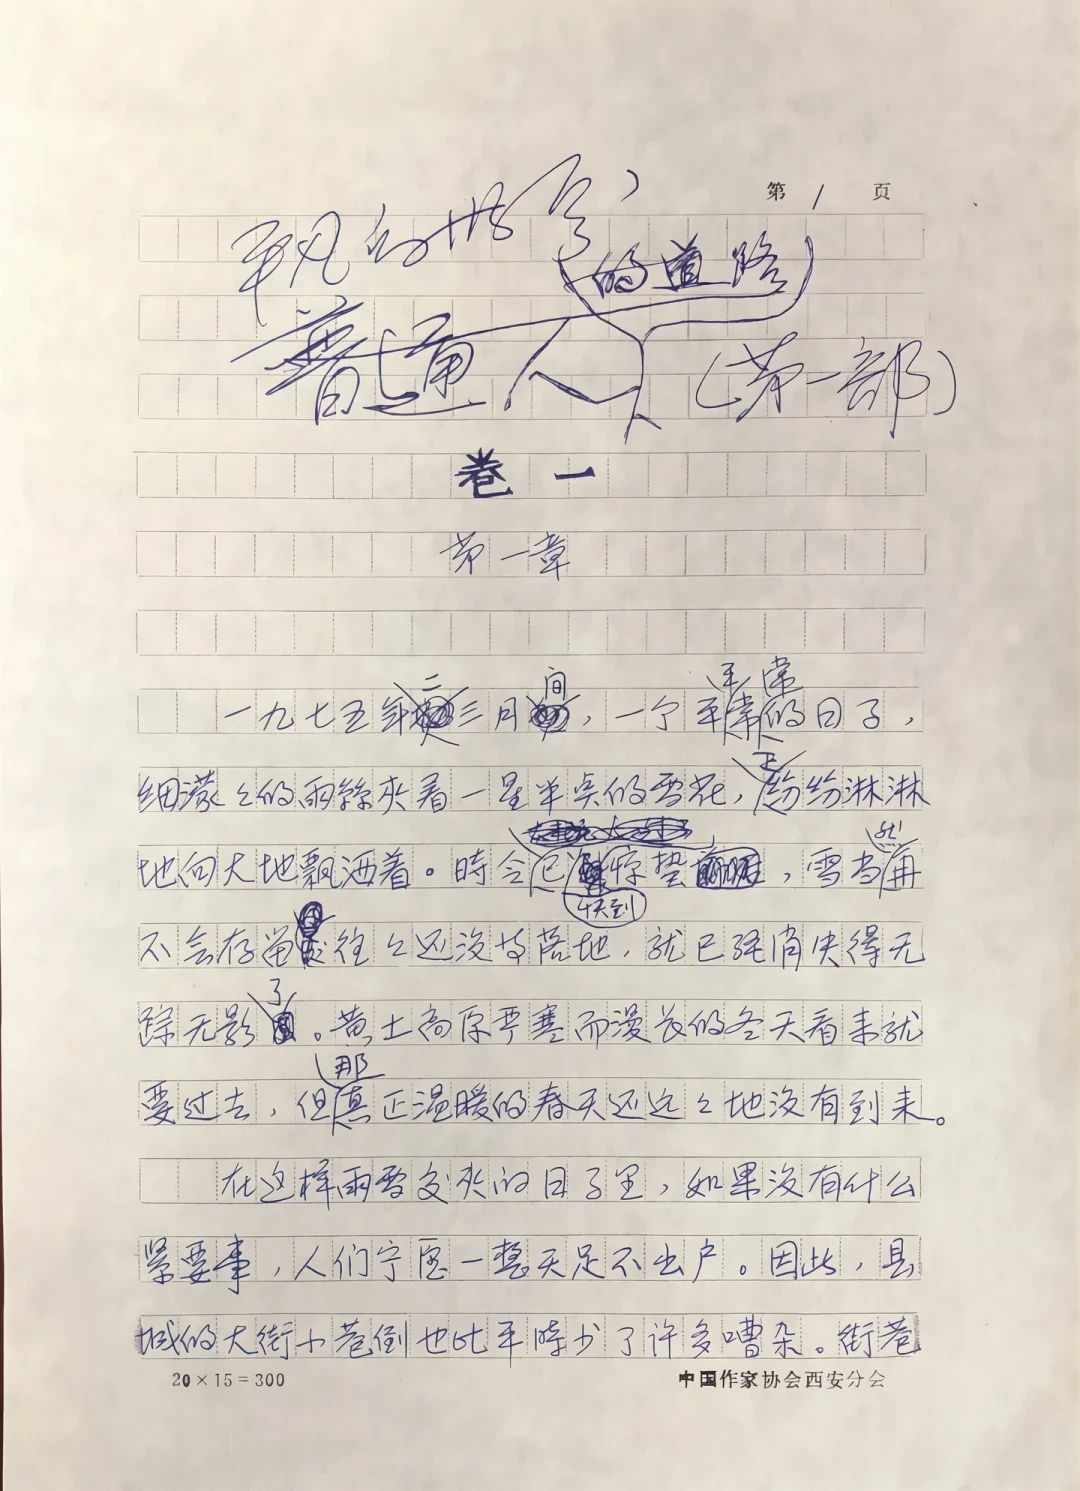 第 1 页
平凡的世界
的道路
普通人（第一部）
卷一
第一章
二 间 平常
一九七五年三月，一个平常的日子，
正
细濛々的雨丝夹着一星半点的雪花，纷纷淋淋
然
地向大地飘洒着。時令已惊蛰，雪当再
快到
不会存留，往々还没等落地，就已经消失得无
了
踪无影。黄土高原严寒而漫长的冬天看来就
那
要过去，但真正温暖的春天还远々地没有到来。
在这样雨雪交夹的日子里，如果没有什么
紧要事，人们宁愿一整天足不出户。因此，县
城的大街小巷倒也比平時少了许多嘈杂。街巷
20×15=300 中国作家协会西安分会